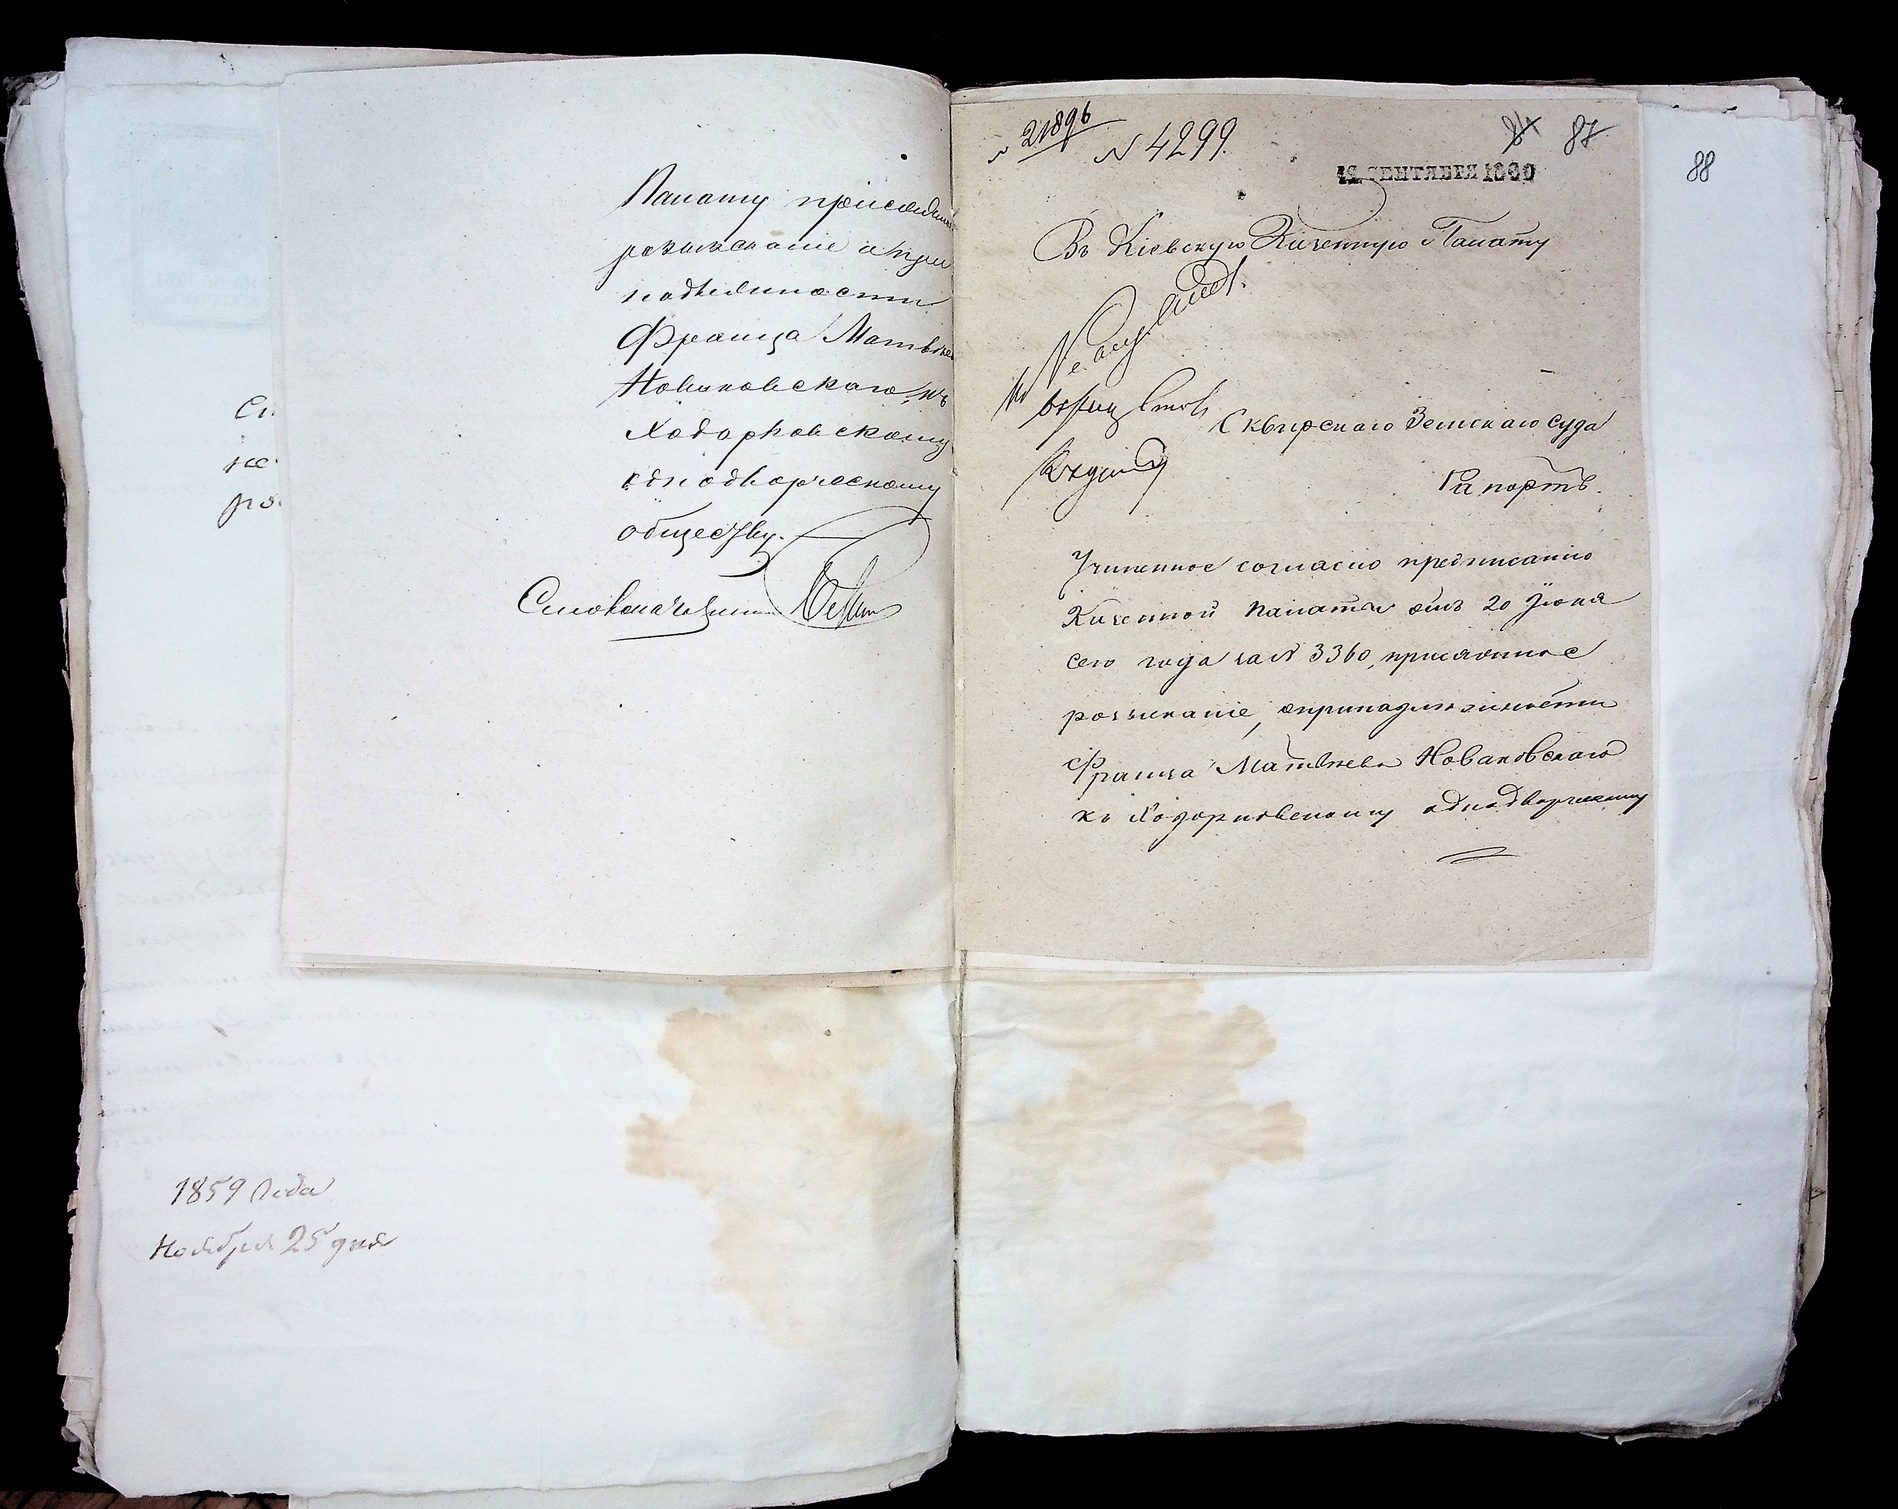 Палату присяжное
розысканіе о при
надлежности
Франца Матвѣева
Новаковскаго къ
Ходорковскому
однодворческому
обществу.
1859 Года
Ноября 25 дня
21896
№ 4299.
87
88
12 СЕНТЯБРЯ 1860
Въ Кіевскую Казенную Палату
Сквирскаго Земскаго суда
Рапортъ.
Учиненное согласно предписанію
Казенной Палаты отъ 20 Іюня
сего года за № 3360, присяжное
розысканіе, опринадлежности
Франца Матвѣева Новаковскаго
къ Ходорковскому однодворческому